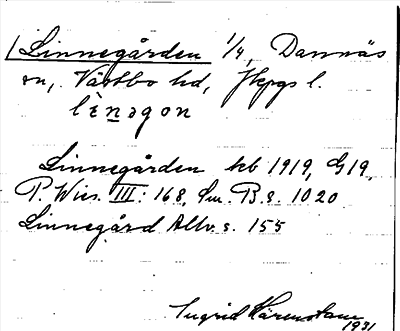 Linnegården 1/4, Dannäs
sn, Västbo hd, Jkpgs l.
lìnəgon
Linnegården kb 1919, G19,
P. Wies. III: 168, Sm. B. s. 1020
Linnegård Allv. s. 155
Ingrid Härenstam
1931